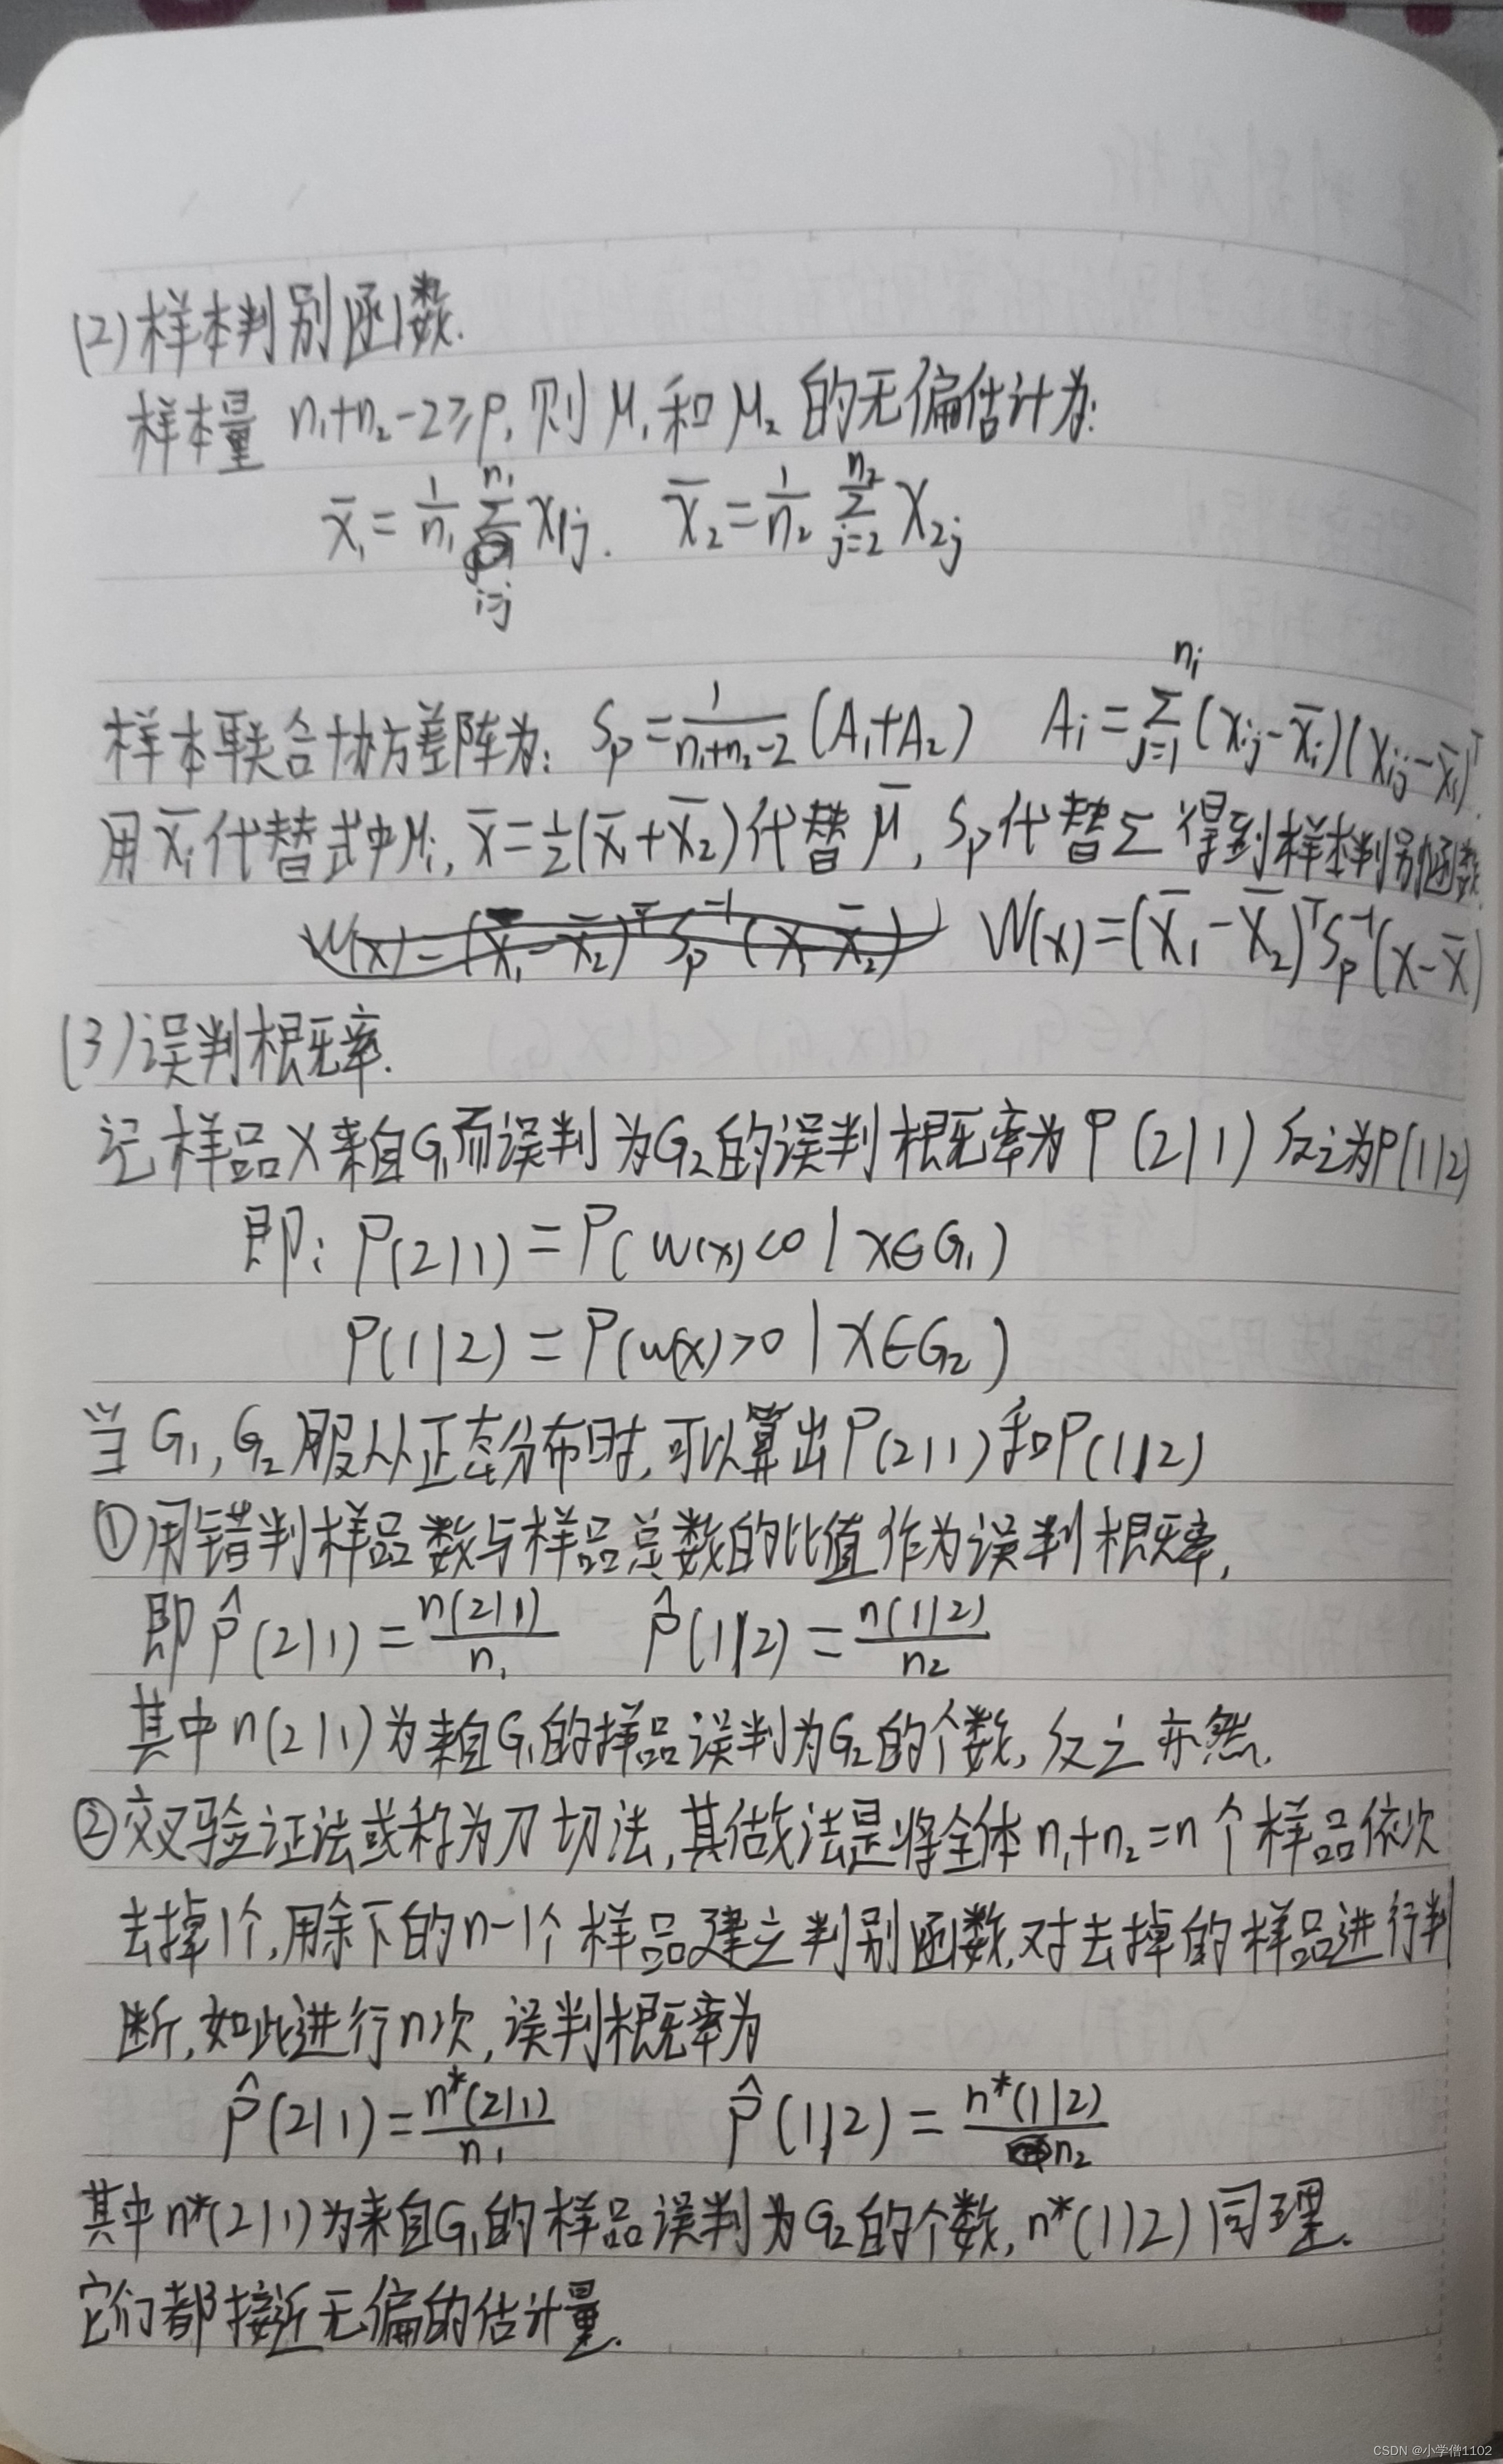 (2)样本判别函数.
样本量 n₁+n₂-2≥p, 则 μ₁ 和 μ₂ 的无偏估计为:
x̄₁ = 1/n₁ Σ x₁j. x̄₂ = 1/n₂ Σ(j=2)(n₂) X₂j
i=j
样本联合协方差阵为: Sp = 1/(n₁+n₂-2) (A₁+A₂) Ai = Σ(j=1)(ni) (xij - x̄i)(xij - x̄i)ᵀ
用 x̄i 代替式中 μi, x̄ = ½(x̄₁+x̄₂) 代替 μ̄, Sp 代替 Σ 得到样本判别函数
W(x) = (x̄₁-x̄₂)ᵀ Sp⁻¹ (x-x̄)
(3)误判概率.
记样品X来自G₁而误判为G₂的误判概率为 P(2|1) 反之为P(1|2)
即: P(2|1) = P(w(x)<0 | x∈G₁)
P(1|2) = P(w(x)>0 | X∈G₂)
当 G₁, G₂ 服从正态分布时, 可以算出 P(2|1) 和 P(1|2)
①用错判样品数与样品总数的比值作为误判概率,
即 P̂(2|1) = n(2|1)/n₁ P̂(1|2) = n(1|2)/n₂
其中 n(2|1) 为来自G₁的样品误判为G₂的个数, 反之亦然.
②交叉验证法或称为刀切法, 其做法是将全体 n₁+n₂=n 个样品依次
去掉1个, 用余下的n-1个样品建立判别函数, 对去掉的样品进行判
断, 如此进行n次, 误判概率为
P̂(2|1) = n*(2|1)/n₁ P̂(1|2) = n*(1|2)/n₂
其中 n*(2|1) 为来自G₁的样品误判为G₂的个数, n*(1|2) 同理.
它们都接近无偏的估计量.
CSDN @小学僧1102